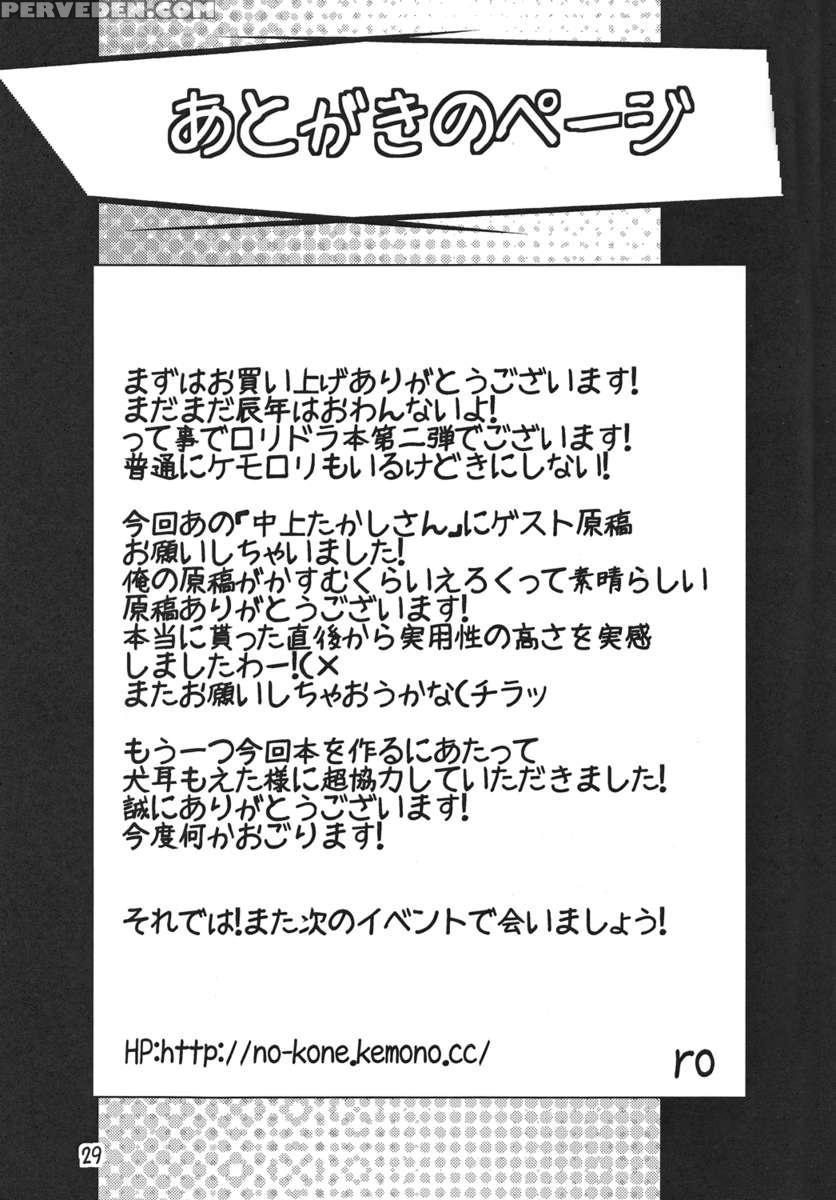 PERVEDEN.COM
あとがきのページ
まずはお買い上げありがとうございます!
まだまだ辰年はおわんないよ!
って事でロリドラ本第二弾でございます!
普通にケモロリもいるけどきにしない!
今回あの『中上たかしさん』にゲスト原稿
お願いしちゃいました!
俺の原稿がかすむくらいえろくって素晴らしい
原稿ありがとうございます!
本当に貰った直後から実用性の高さを実感
しましたわー!(×
またお願いしちゃおうかな(チラッ
もう一つ今回本を作るにあたって
犬耳もえた様に超協力していただきました!
誠にありがとうございます!
今度何かおごります!
それでは!また次のイベントで会いましょう!
HP:http://no-kone.kemono.cc/
ro
29